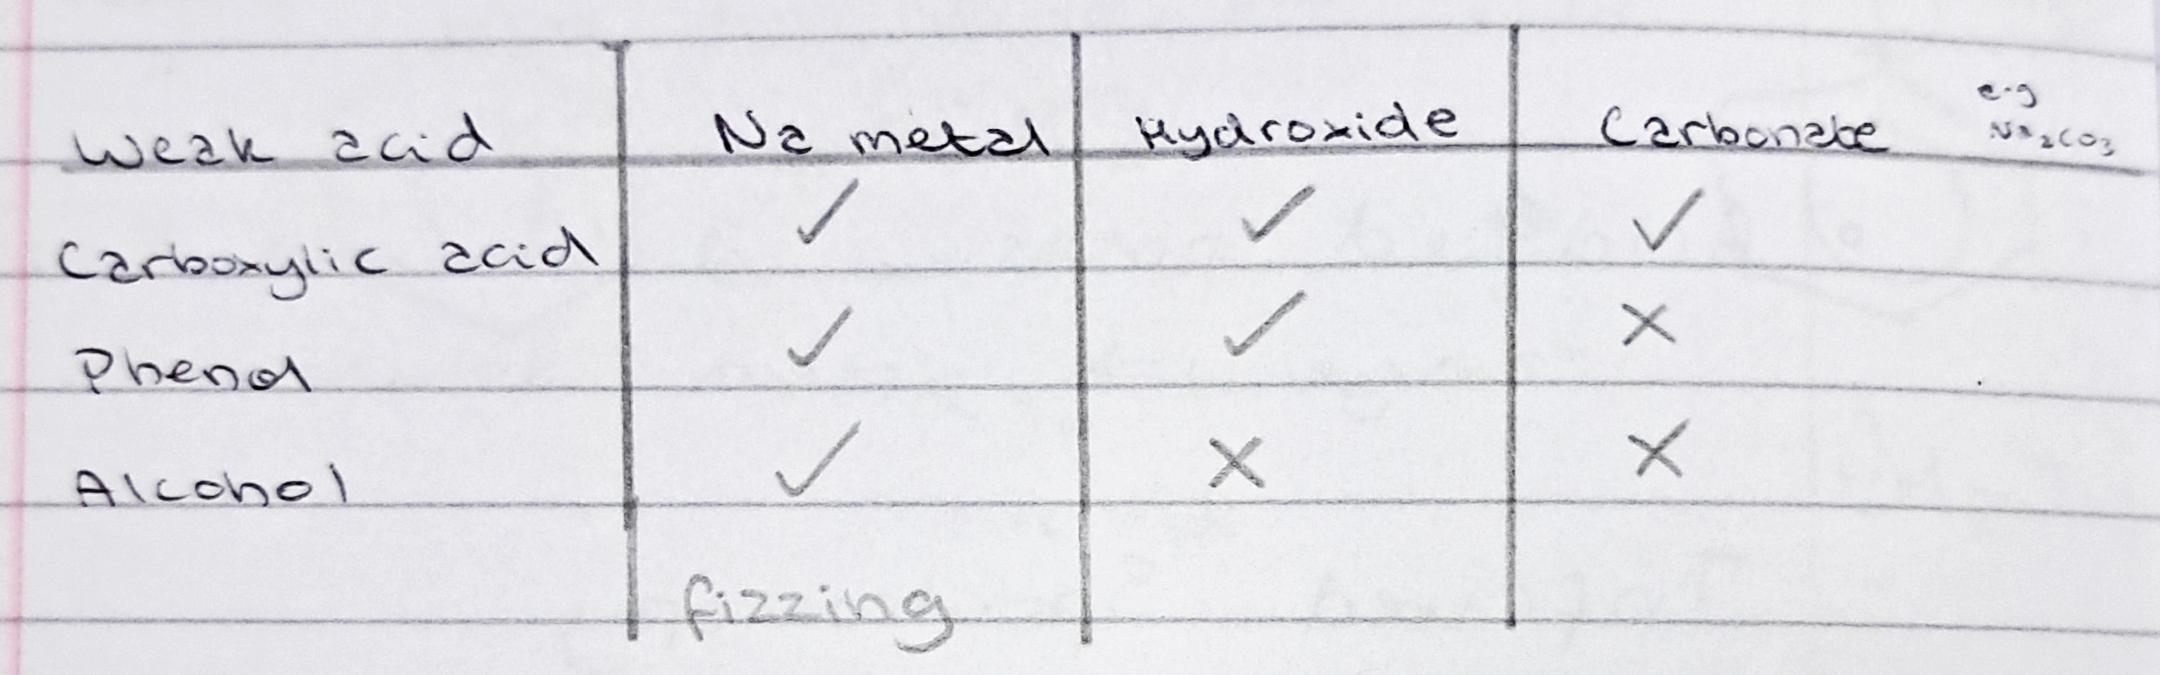 Weak acid Na metal Hydroxide Carbonate e.g Na₂CO₃
Carboxylic acid ✓ ✓ ✓
Phenol ✓ ✓ ✗
Alcohol ✓ ✗ ✗
fizzing